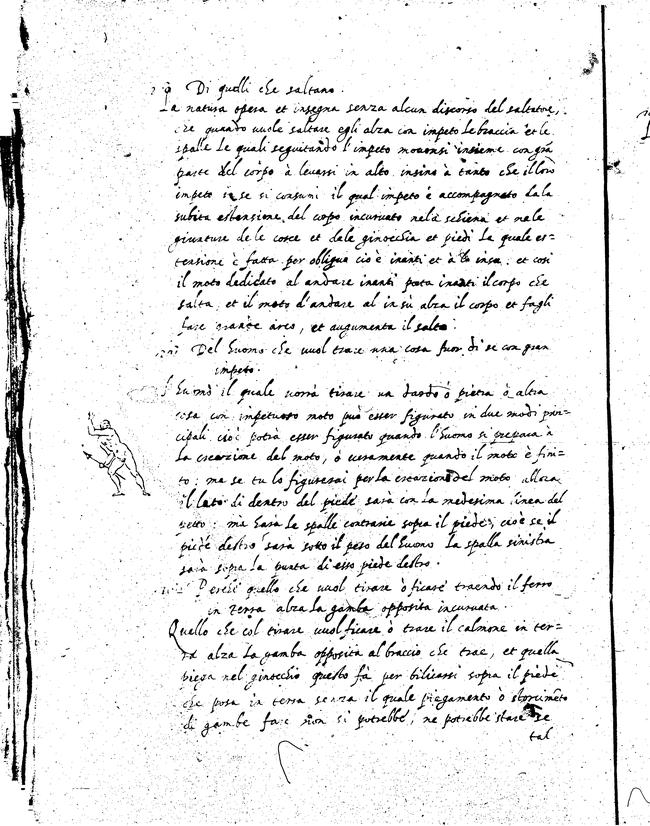 Di quelli che saltano.
La natura opera et insegna senza alcun discorso del saltatore,
che quando vuole saltare egli alza con impeto le braccia et le
spalle le quali seguitando l'impeto movonsi insieme con grā
parte del corpo à levarsi in alto insino à tanto che il loro
impeto in se si consumi il qual impeto è accompagnato dala
subita estensione del corpo incurvato nela schena et nele
giunture dele cosce et dele ginocchia et piedi la quale es=
tensione è fatta per obliqua cio è inanti et à lo insu; et cosi
il moto dedicato al andare inanti porta inanti il corpo che
salta, et il moto d'andare al in sù alza il corpo et fagli
fare grande arco, et augumenta il salto.
Del huomo che vuol trare una cosa fuor di se con gran
impeto.
L'huomo il quale vorrà tirare un dardo ò pietra ò altra
cosa con impetuoso moto può esser figurato in due modi prin=
cipali cioè potrà esser figurato quando l'huomo si prepara à
la creazione del moto, ò veramente quando il moto è fini=
to; ma se tu lo figurerai per la creazione del moto allora
il lato di dentro del piede sarà con la medesima linea del
petto: ma harà le spalle contrarie sopra il piede, cioè se il
piede destro sarà sotto il peso del huomo la spalla sinistra
sarà sopra la punta di esso piede destro.
Perchè quello che vuol tirare ò ficare traendo il ferro
in terra alza la gamba opposita incurvata.
Quello che col tirare vuol ficare ò trare il calmone in ter=
ra alza la gamba opposita al braccio che trae, et quella
piega nel ginocchio questo fà per bilicarsi sopra il piede
che posa in terra senza il quale piegamento ò storcimēto
di gambe fare non si potrebbe, ne potrebbe stare se
tal